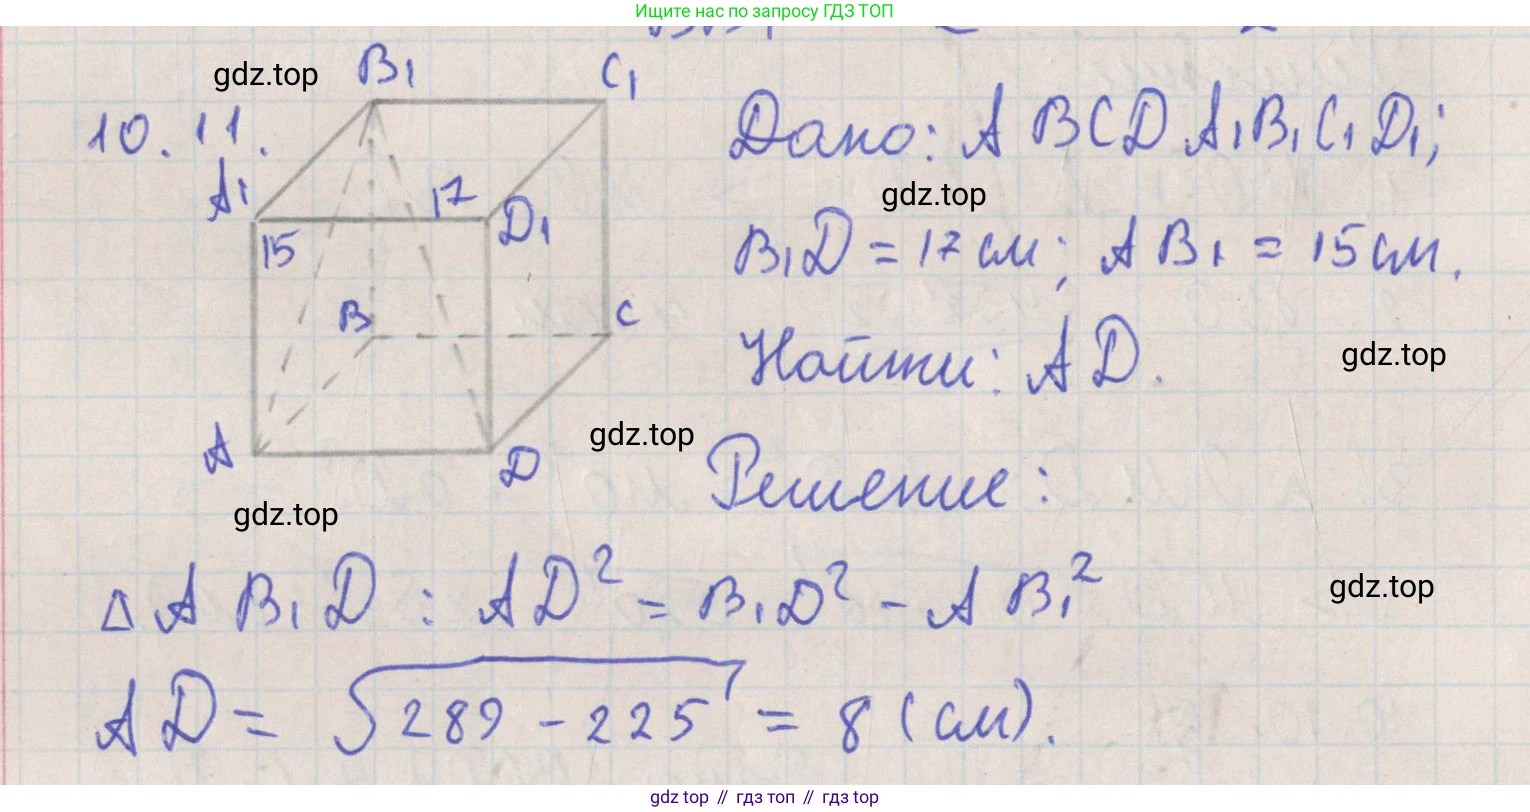 Ищите нас по запросу ГДЗ ТОП
gdz.top
B₁
C₁
10.11.
Дано: ABCDA₁B₁C₁D₁;
A₁
17
gdz.top
D₁
15
B₁D = 17 см; AB₁ = 15 см.
B
C
Найти: AD.
gdz.top
gdz.top
A
D
Решение:
gdz.top
Δ AB₁D : AD² = B₁D² - AB₁²
gdz.top
AD = √289 - 225 = 8 (см).
gdz top // гдз топ // гдз top